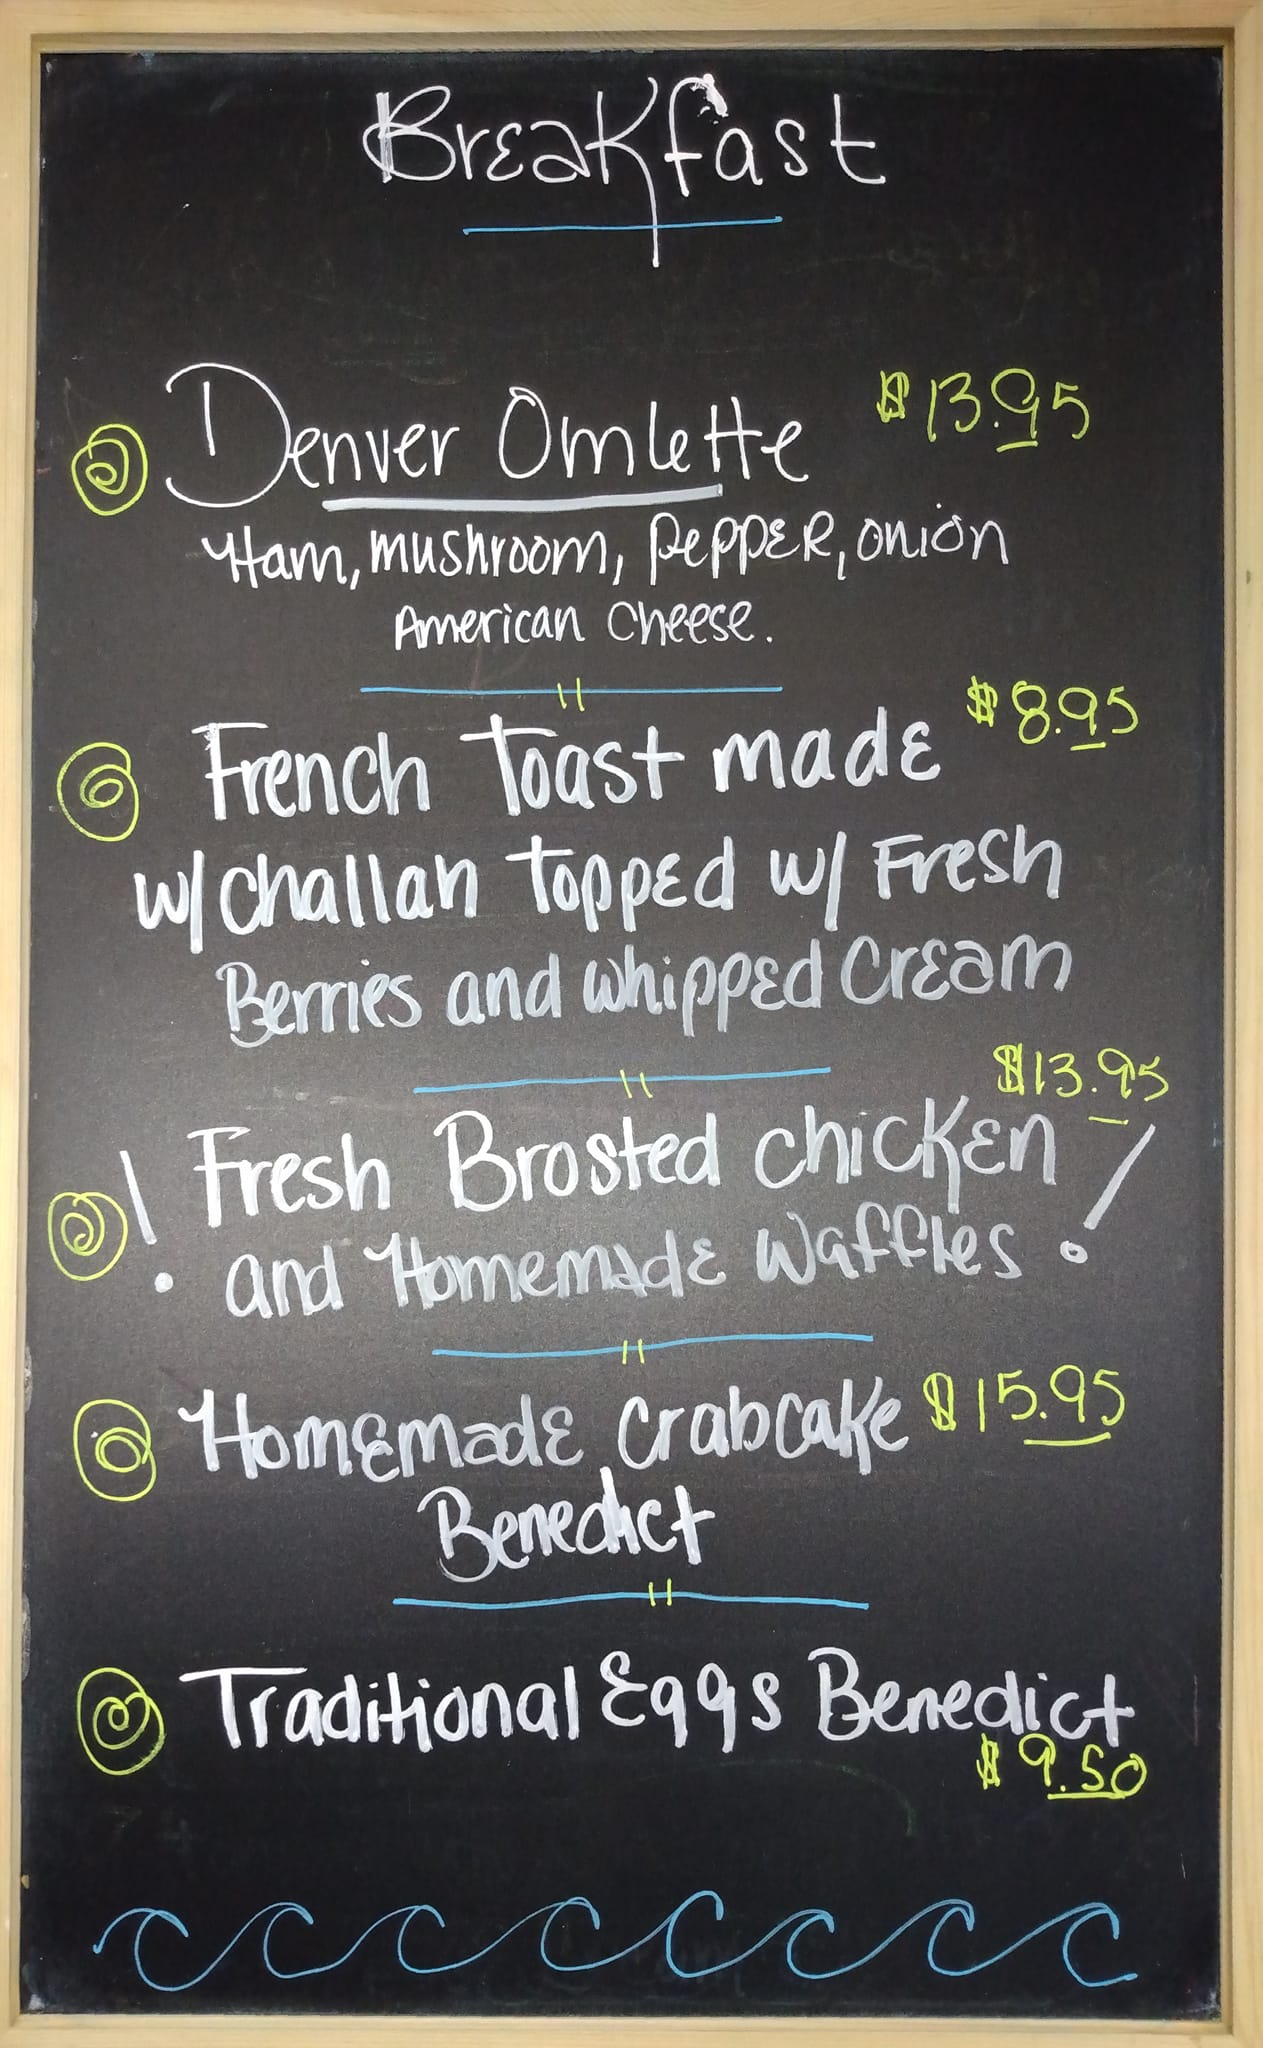 Breakfast
Denver Omlette $13.95
Ham, mushroom, Pepper, onion
American Cheese.
French Toast made $8.95
w/ challah topped w/ Fresh
Berries and whipped Cream
$13.95
! Fresh Brosted chicken !
and Homemade Waffles
Homemade Crabcake $15.95
Benedict
Traditional Eggs Benedict
$9.50